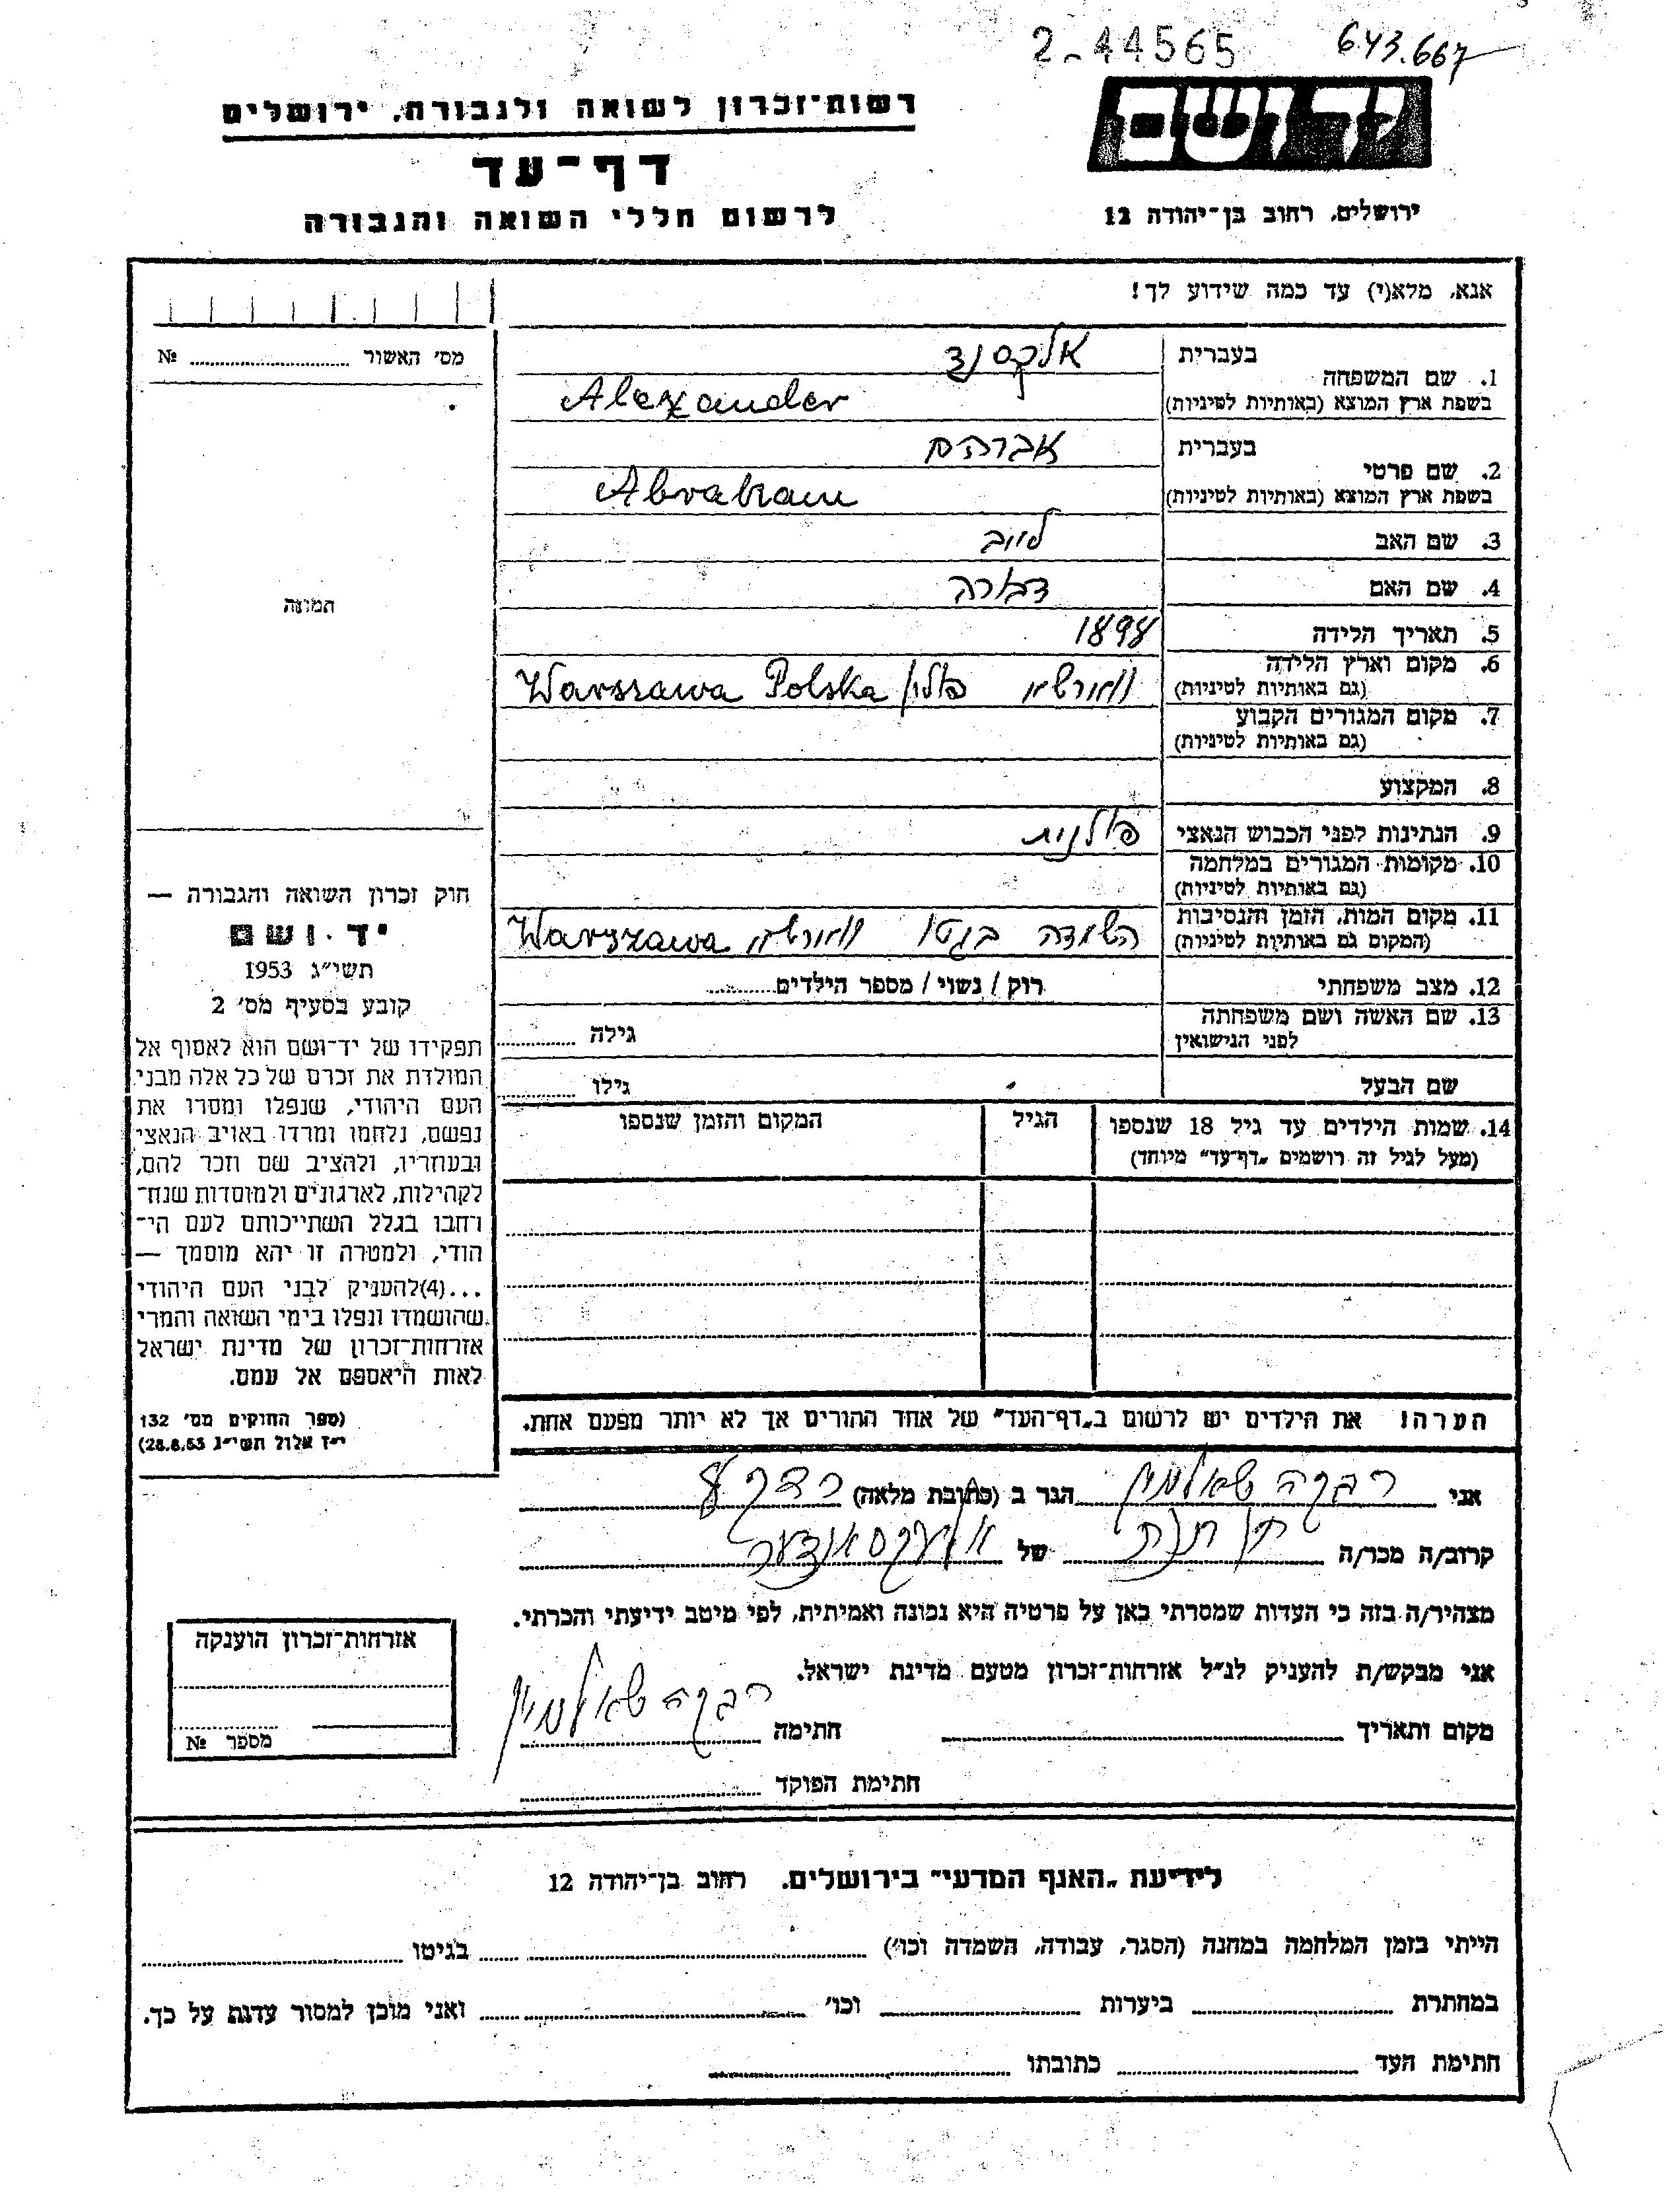 2-44565
643.667
יד ושם
ירושלים, רחוב בן־יהודה 12
רשות־זכרון לשואה ולגבורה, ירושלים
דף־עד
לרשום חללי השואה והגבורה
אנא, מלא(י) עד כמה שידוע לך!
בעברית אלקסנד
1. שם המשפחה
בשפת ארץ המוצא (באותיות לטיניות) Alexander
בעברית אברהם
2. שם פרטי
בשפת ארץ המוצא (באותיות לטיניות) Abraham
3. שם האב לייב
4. שם האם דבורה
5. תאריך הלידה 1898
6. מקום וארץ הלידה
(גם באותיות לטיניות) ווארשא פולין Warszawa Polska
7. מקום המגורים הקבוע
(גם באותיות לטיניות)
8. המקצוע
9. הנתינות לפני הכבוש הנאצי פולנית
10. מקומות המגורים במלחמה
(גם באותיות לטיניות)
11. מקום המות, הזמן והנסיבות
(המקום גם באותיות לטיניות) השמדה בגטו ווארשא Warszawa
12. מצב משפחתי רוק / נשוי / מספר הילדים
13. שם האשה ושם משפחתה
לפני הנישואין גילה
שם הבעל גילו
14. שמות הילדים עד גיל 18 שנספו הגיל המקום והזמן שנספו
(מעל לגיל זה רושמים „דף־עד" מיוחד)
הערה! את הילדים יש לרשום ב„דף־העד" של אחד ההורים אך לא יותר מפעם אחת.
מס' האשור №
תמונה
חוק זכרון השואה והגבורה —
יד ושם
תשי"ג 1953
קובע בסעיף מס' 2
תפקידו של יד־ושם הוא לאסוף אל
המולדת את זכרם של כל אלה מבני
העם היהודי, שנפלו ומסרו את
נפשם, נלחמו ומרדו באויב הנאצי
ובעוזריו, ולהציב שם וזכר להם,
לקהילות, לארגונים ולמוסדות שנח־
רחבו בגלל השתייכותם לעם הי־
הודי, ולמטרה זו יהא מוסמך —
...(4) להעניק לבני העם היהודי
שהושמדו ונפלו בימי השואה והמרי
אזרחות־זכרון של מדינת ישראל
לאות היאספם אל עמם.
(ספר החוקים מס' 132
י"ז אלול תשי"ג 28.8.53)
אני רבקה הגר ב (כתובת מלאה)
קרוב/ה מכר/ה של אלעקסאנדער
מצהיר/ה בזה כי העדות שמסרתי כאן על פרטיה היא נכונה ואמיתית, לפי מיטב ידיעתי והכרתי.
אני מבקש/ת להעניק לנ"ל אזרחות־זכרון מטעם מדינת ישראל.
מקום ותאריך חתימה רבקה
חתימת הפוקד
אזרחות־זכרון הוענקה
מספר №
לידיעת „האגף המדעי" בירושלים. רחוב בן־יהודה 12
הייתי בזמן המלחמה במחנה (הסגר, עבודה, השמדה וכו') בגיטו
במחתרת ביערות וכו' ואני מוכן למסור עדות על כך.
חתימת העד כתובתו